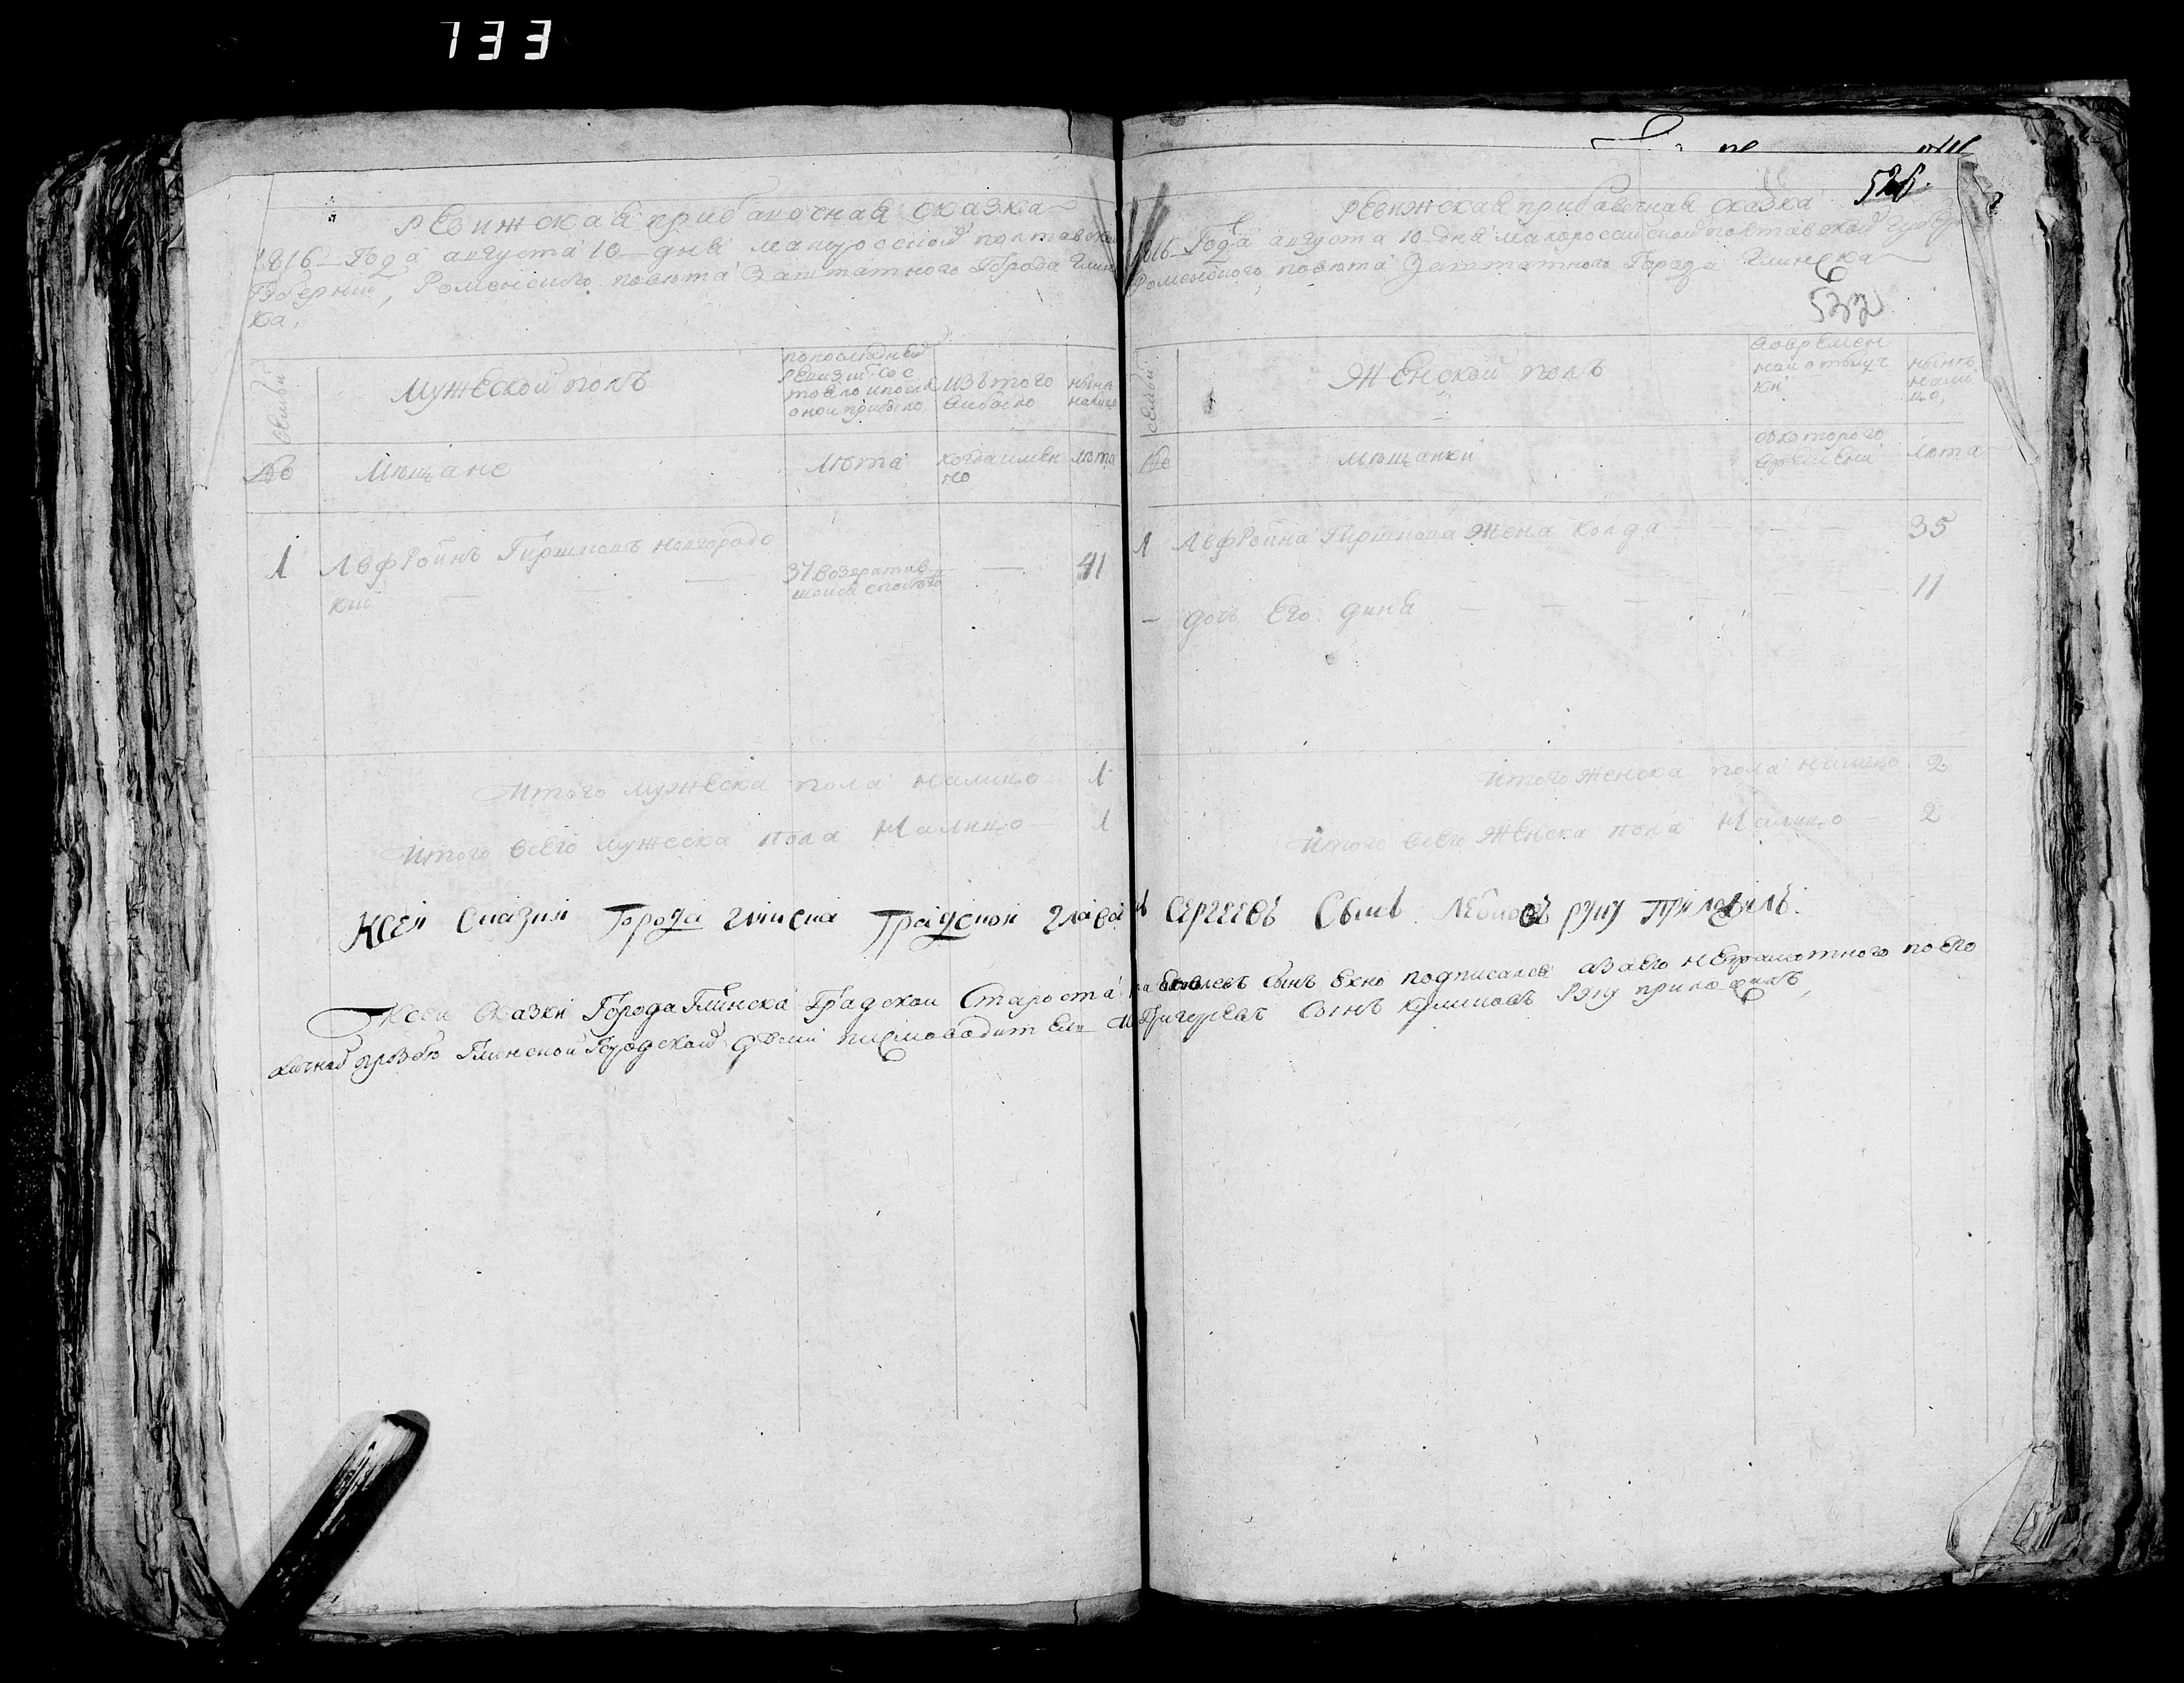 133
Ревижская прибавочная сказка
1816 Года августа 10 дня малоросской полтавской
Губернии, Роменского повета Заштатного Города Глинс
ка,
семьи
Мужеской полъ
попоследней
ревизии сос
тояло и после
оной прибыло
изъ того
выбыло
ныне
налицо
№
Мещане
лета
когда имен
но
лета
1
Лефройнъ Гиршновъ новгородс
кий
37 возвратив
41
Итого мужеска пола налицо 1
Итого всего мужеска пола налицо 1
525.
Ревижская прибавочная сказка
1816 Года августа 10 дня малоросийской полтавской Губер
Роменского повета Заштатного Города Глинска
семьи
Женской полъ
вовремен
ной отлуч
ки
ныне
нали
цо,
№
мещанки
съ которого
времени
лета
1 Лефройна Гиршнова жена Колда 35
дочь Его дина 11
Итого женска пола налицо 2
Итого всего женска пола налицо 2
Ксей сказки Города Глинска Градской глава Сергеевъ Сынъ руку Приложилъ.
Ксей сказки Города Глинска Градской Староста сынъ подписался а за его неграмотного по его
личной прозбе Глинской Городской думи писмоводитель Григорьевъ сынъ руку приложилъ,